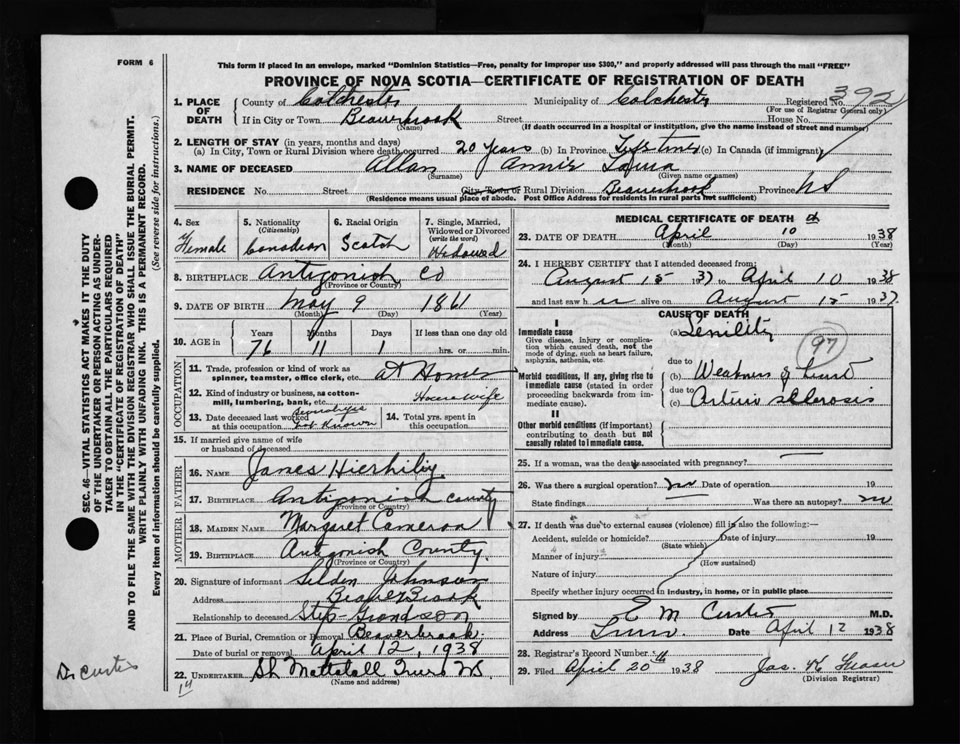 FORM 6
This form if placed in an envelope, marked "Dominion Statistics—Free, penalty for improper use $300," and properly addressed will pass through the mail "FREE"
PROVINCE OF NOVA SCOTIA—CERTIFICATE OF REGISTRATION OF DEATH
1. PLACE OF DEATH County of Colchester Municipality of Colchester Registered No. 392
(For use of Registrar General only)
If in City or Town Beaverbrook Street House No.
(Name) (If death occurred in a hospital or institution, give the name instead of street and number)
2. LENGTH OF STAY (in years, months and days)
(a) In City, Town or Rural Division where death occurred 20 years (b) In Province Lifetime (c) In Canada (if immigrant)
3. NAME OF DECEASED Allan Annie
(Surname) (Given name or names)
RESIDENCE No. Street City, Town or Rural Division Beaverbrook Province N S
(Residence means usual place of abode. Post Office Address for residents in rural parts not sufficient)
SEC. 46—VITAL STATISTICS ACT MAKES IT THE DUTY
OF THE UNDERTAKER OR PERSON ACTING AS UNDER-
TAKER TO OBTAIN ALL THE PARTICULARS REQUIRED
IN THE "CERTIFICATE OF REGISTRATION OF DEATH"
AND TO FILE THE SAME WITH THE DIVISION REGISTRAR WHO SHALL ISSUE THE BURIAL PERMIT.
WRITE PLAINLY WITH UNFADING INK. THIS IS A PERMANENT RECORD.
Every item of information should be carefully supplied. (See reverse side for instructions.)
4. Sex Female
5. Nationality (Citizenship) Canadian
6. Racial Origin Scotch
7. Single, Married, Widowed or Divorced (write the word) Widowed
8. BIRTHPLACE Antigonish Co
(Province or Country)
9. DATE OF BIRTH May 9 1861
(Month) (Day) (Year)
10. AGE in Years Months Days If less than one day old
76 11 1 hrs. or min.
OCCUPATION
11. Trade, profession or kind of work as spinner, teamster, office clerk, etc. at Home
12. Kind of industry or business, as cotton-mill, lumbering, bank, etc. Housewife
13. Date deceased last worked at this occupation not known
14. Total yrs. spent in this occupation
15. If married give name of wife or husband of deceased
FATHER
16. NAME James
17. BIRTHPLACE Antigonish County
(Province or Country)
MOTHER
18. MAIDEN NAME Margaret Cameron
19. BIRTHPLACE Antigonish County
(Province or Country)
20. Signature of informant Selden Johnson
Address Beaver Brook
Relationship to deceased Step-Grandson
21. Place of Burial, Cremation or Removal Beaverbrook
Date of burial or removal April 12, 1938
22. UNDERTAKER Truro NS
(Name and address)
Dr Curtis
14
MEDICAL CERTIFICATE OF DEATH
23. DATE OF DEATH April 10 th 1938
(Month) (Day) (Year)
24. I HEREBY CERTIFY that I attended deceased from:
August 15 1937 to April 10 1938
and last saw her alive on August 15 1937
CAUSE OF DEATH
I
Immediate cause (a) Senility
Give disease, injury or complication which caused death, not the mode of dying, such as heart failure, asphyxia, asthenia, etc.
97
due to
Morbid conditions, if any, giving rise to immediate cause (stated in order proceeding backwards from immediate cause). (b) Weakness of heart
due to
(c) Arterio sclerosis
II
Other morbid conditions (if important) contributing to death but not causally related to immediate cause.
25. If a woman, was the death associated with pregnancy?
26. Was there a surgical operation? no Date of operation 19
State findings Was there an autopsy? no
27. If death was due to external causes (violence) fill in also the following:—
Accident, suicide or homicide? Date of injury 19
(State which)
Manner of injury
(How sustained)
Nature of injury
Specify whether injury occurred in industry, in home, or in public place
Signed by E M Curtis M.D.
Address Truro. Date April 12 1938
28. Registrar's Record Number
29. Filed April 20th 1938 Jas. K
(Division Registrar)